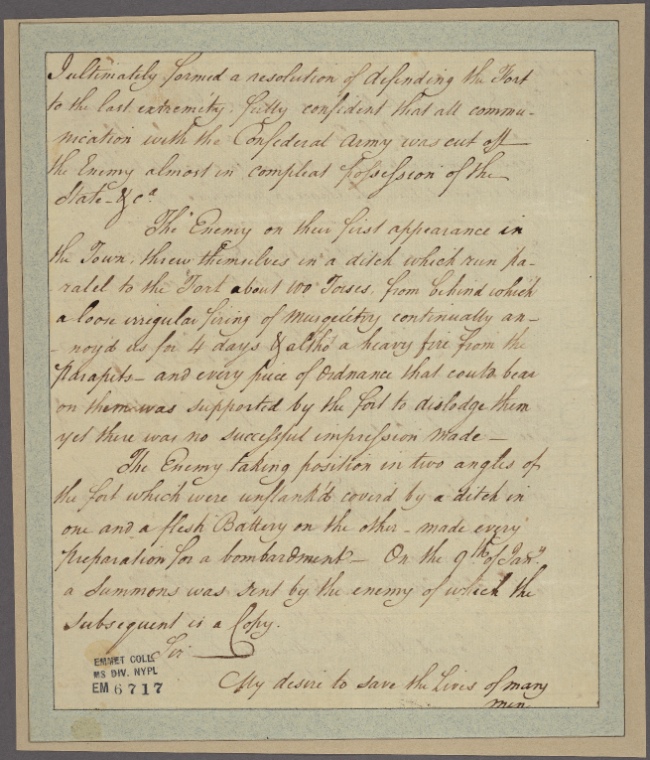 I ultimately formed a resolution of defending the Fort
to the last extremity. fully confident that all commu-
nication with the Confederal Army was cut off
the Enemy almost in compleat possession of the
State - & ca
The Enemy on their first appearance in
the Town, threw themselves in a ditch which run pa-
ralel to the Fort about 100 Toises, from behind which
a loose irregular firing of Musquetry continually an-
-noy'd us for 4 days & altho' a heavy fire from the
Parapits - and every piece of Ordnance that could bear
on them was supported by the fort to dislodge them
yet there was no successful impression made -
The Enemy taking position in two angles of
the fort which were unflank'd cover'd by a ditch in
one and a flesh Battery on the other - made every
preparation for a bombardment - On the 9th of Jany.
a Summons was sent by the enemy of which the
subsequent is a Copy.
Sir
My desire to save the Lives of many
men.
EMMET COLL.
MS DIV. NYPL
EM 6717